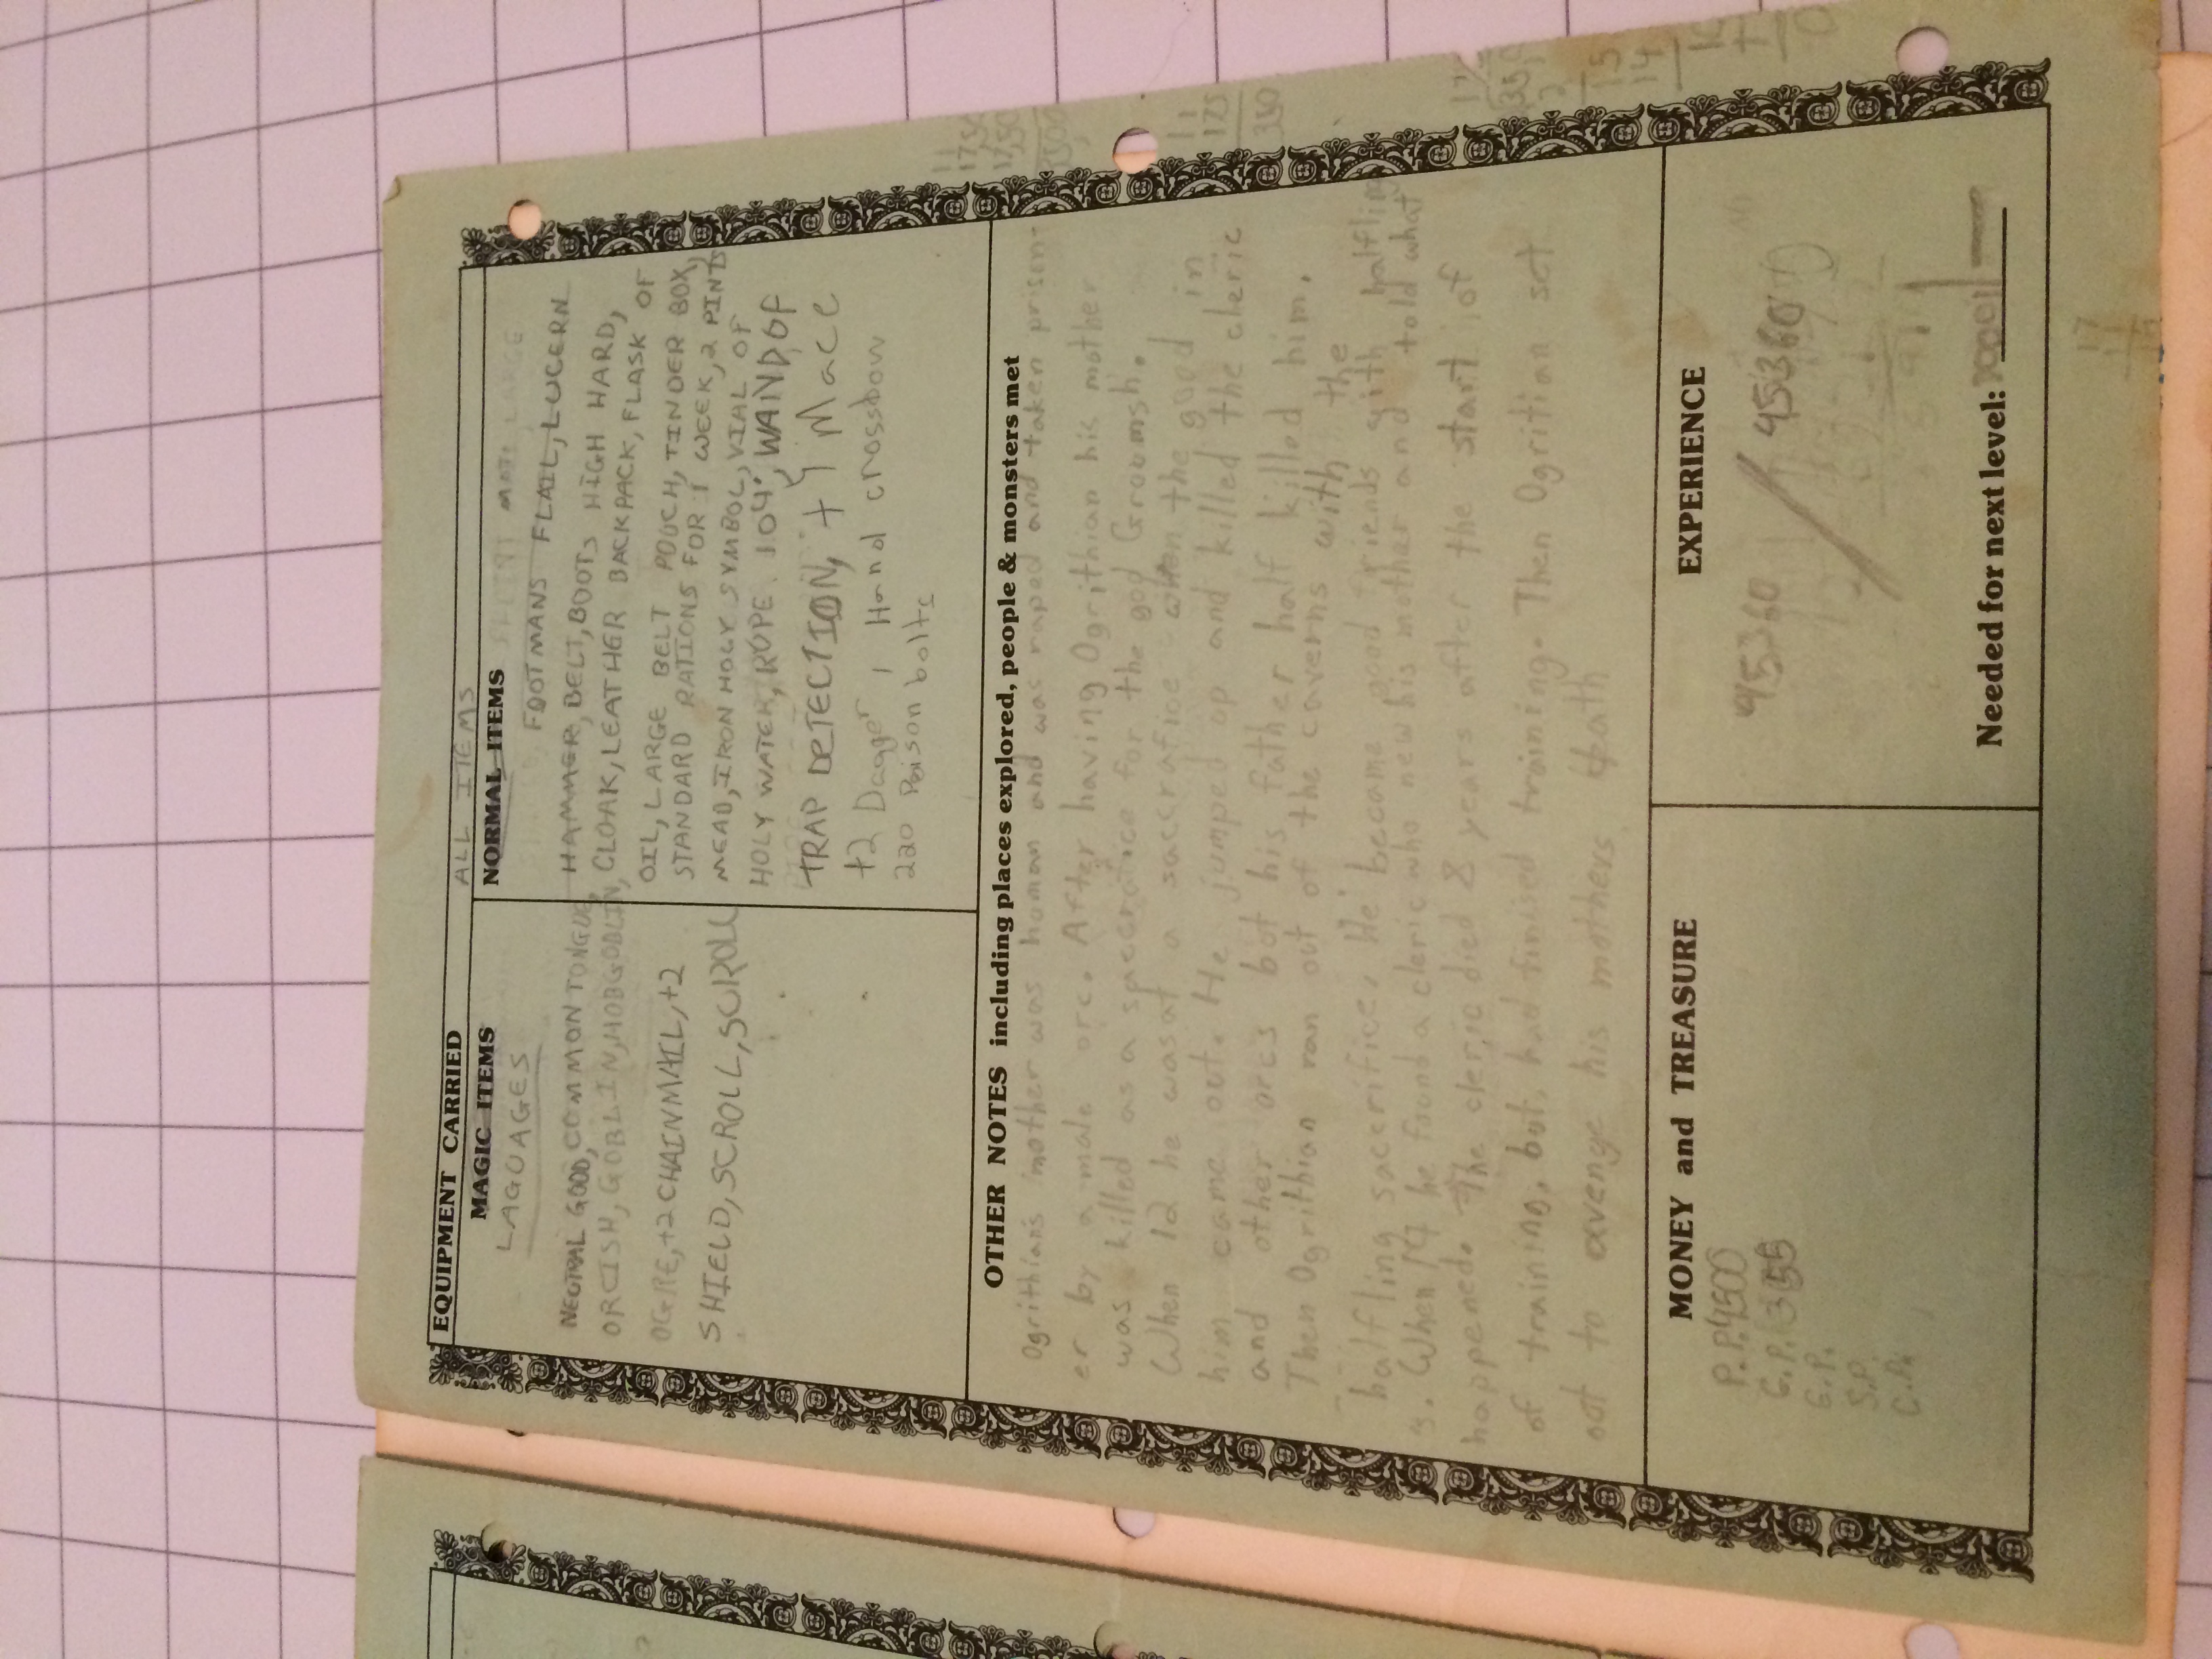 EQUIPMENT CARRIED
ALL ITEMS
MAGIC ITEMS
LAGUAGES
NEUTRAL GOOD, COMMON TONGUE,
ORCISH, GOBLIN, HOBGOBLIN,
OGRE, +2 CHAINMAIL, +2
SHIELD, SCROLL, SCROLL
NORMAL ITEMS
LARGE
FOOTMANS FLAIL, LUCERN
HAMMER, BELT, BOOTS HIGH HARD,
CLOAK, LEATHER BACKPACK, FLASK OF
OIL, LARGE BELT POUCH, TINDER BOX,
STANDARD RATIONS FOR 1 WEEK, 2 PINTS
MEAD, IRON HOLY SYMBOL, VIAL OF
HOLY WATER, ROPE 104', WAND OF
TRAP DETECTION, + 4 Mace
+2 Dagger 1 Hand crossbow
220 Poison bolts
OTHER NOTES including places explored, people & monsters met
Ogrithians mother was human and was raped and taken prison-
er by a male orc. After having Ogrithian his mother
was killed as a for the god Groomsh.
When 12 he was at a saccrafice when the god in
him came out. He jumped up and killed the cleric
and other orcs but his father half killed him.
Then Ogrithian ran out of the caverns with the
halfling saccerifice. He become good friends with halfling
s. When 14 he found a cleric who new his mother and told what
happened. The cleric died 8 years after the start of
of training, but had finised training. Then Ogrition set
out to avenge his mothers death
MONEY and TREASURE
P.P. 4500
G.P.
E.P.
S.P.
C.P.
EXPERIENCE
45360 / 45360
Needed for next level:
11
1750
1750
3500
11
175
350
15
14
17